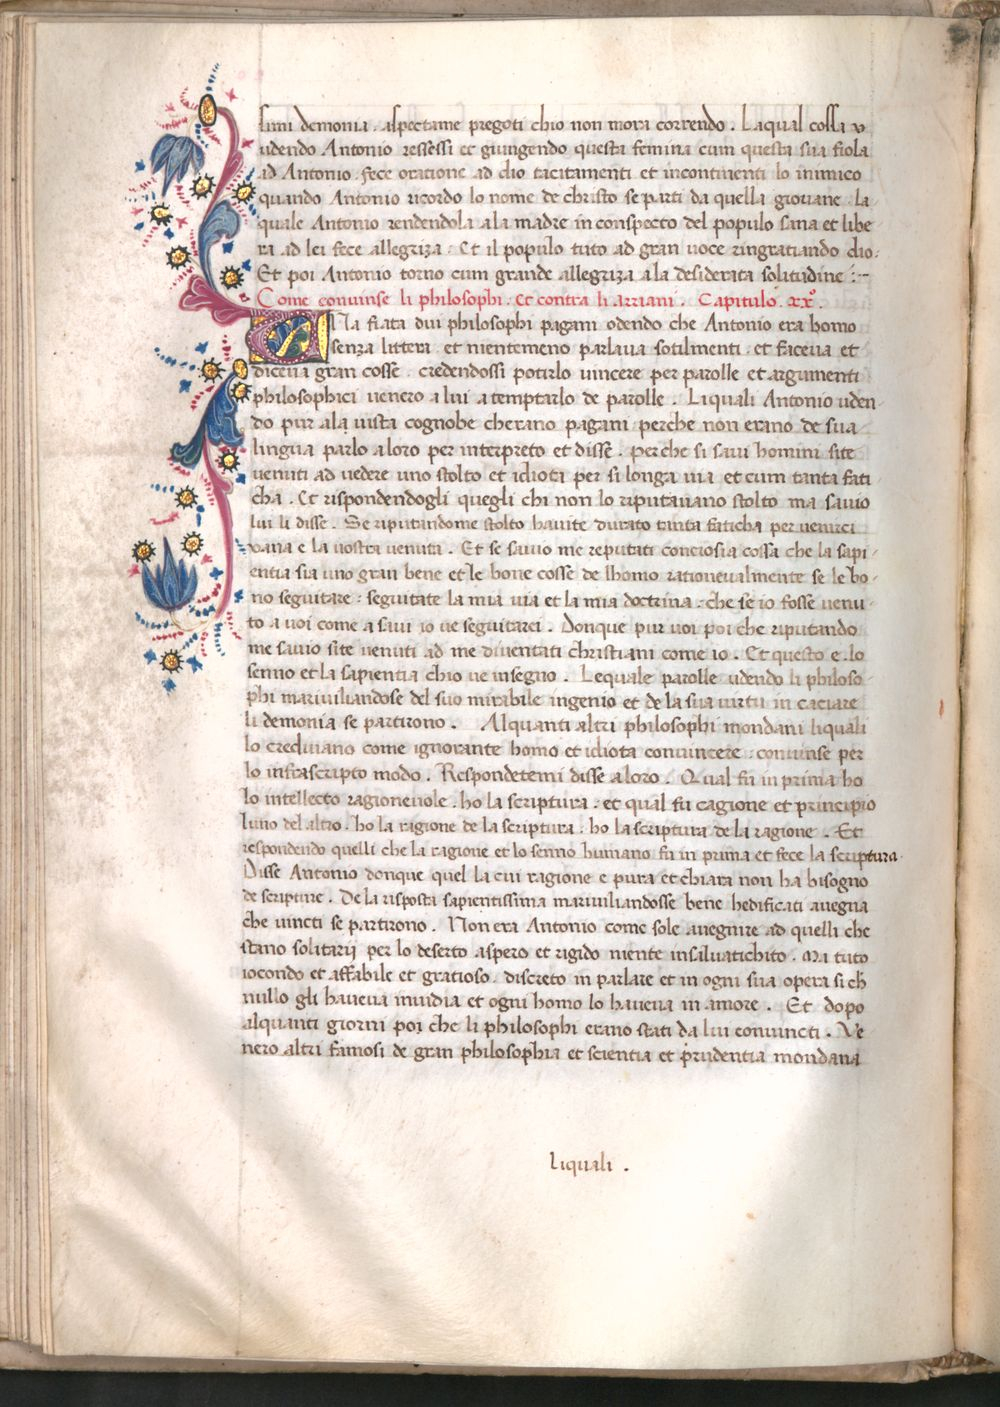 simi demonia . aspectame pregoti chio non mora correndo . Laqual cossa v
udendo Antonio restessi et giungendo questa femina cum questa sua fiola
ad Antonio . fece oratione ad dio tacitamenti et incontinenti lo inimico
quando Antonio ricordo lo nome de christo se parti da quella giovane . la
quale Antonio rendendola ala madre in conspecto del populo sana et libe
ra ad lei fece allegriza . Et il populo tuto ad gran uoce ringratiando dio .
Et poi Antonio torno cum grande allegriza ala desiderata solitudine :-
Come conuinse li philosophi . et contra li arriani . Capitulo . xx° .
Vna fiata dui philosophi pagani odendo che Antonio era homo
senza littera . et nientemeno parlaua sotilmenti . et faceua et
diceua gran cosse . credendossi potirlo uincere per parolle et argumenti
philosophici uenero a lui a temptarlo de parolle . Liquali Antonio uden-
do pur ala uista cognobe cherano pagani . perche non erano de sua
lingua parlo aloro per interpreto et disse . perche si saui homini site
uenuti ad uedere uno stolto et idiota per si longa uia et cum tanta fati-
cha . Et rispondendogli quegli chi non lo riputauano stolto ma sauio
lui li disse . Se riputandome stolto hauite durato tanta faticha per uenirci
vana e la uostra uenuta . Et se sauio me reputati conciosia cossa che la sapi-
entia sia uno gran bene et le bone cosse de lhomo rationeualmente se lebo-
no seguitare : seguitate la mia uia et la mia doctrina . che se io fosse uenu-
to a uoi come a saui io ue seguitarei . Donque pur uoi poi che riputando
me sauio site uenuti ad me diuentati christiani come io . Et questo e lo
senno et la sapientia chio ue insegno . Lequale parolle udendo li philoso-
phi mariuiliandose del suo mirabile ingenio et de la sua uirtu in caciare
li demonia se partirono . Alquanti altri philosophi mondani liquali
lo crediuano come ignorante homo et idiota conuincere . conuinse per
lo infrascripto modo . Respondetemi disse aloro . Qual fu in prima ho
lo intellecto ragioneuole . ho la scriptura . et qual fu cagione et principio
luno del altro . ho la ragione de la scriptura . ho la scriptura de la ragione . Et
respondendo quelli che la ragione et lo senno humano fu in prima et fece la scriptura .
Disse Antonio donque quel la cui ragione e pura et chiara non ha bisogno
de scripture . De la risposta sapientissima mariuiliandosse bene hedificati auegna
che uincti se partirono . Non era Antonio come sole auegnire ad quelli che
stano solitarij per lo deserto aspero et rigido niente insaluatichito . Ma tuto
iocondo et affabile et gratioso . discreto in parlare et in ogni sua opera si ch
nullo gli haueua inuidia et ogni homo lo haueua in amore . Et dopo
alquanti giorni poi che li philosophi erano stati da lui conuincti . Ve
nero altri famosi de gran philosophia et scientia et prudentia mondana
liquali .